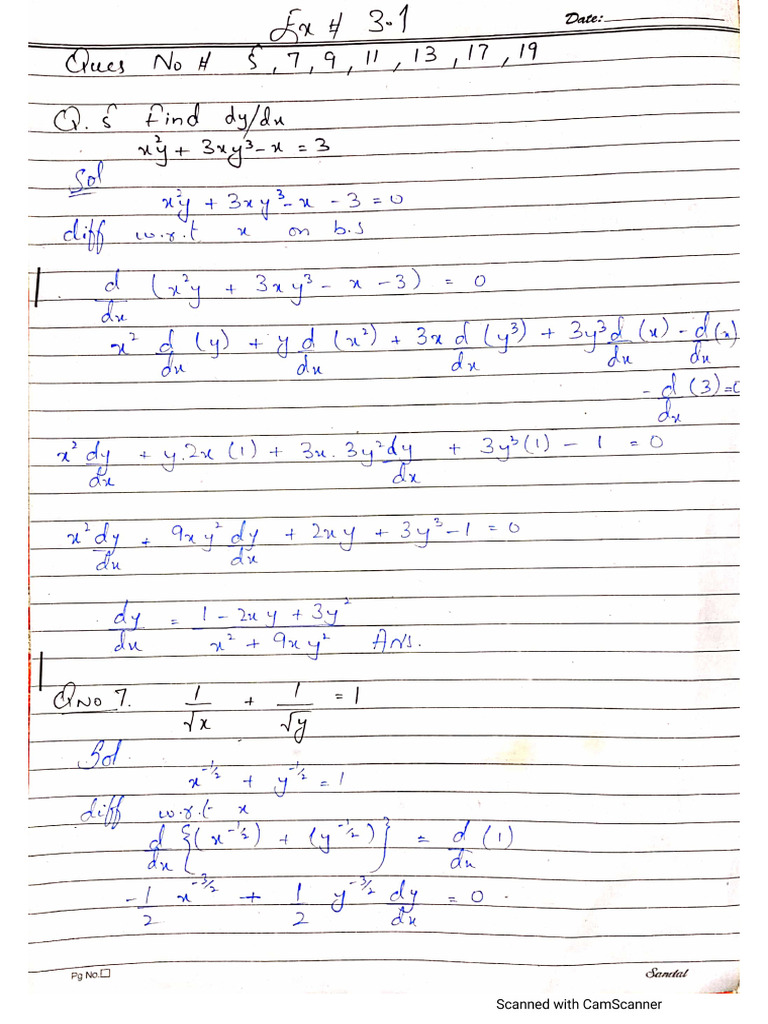 Ex # 3.1
Date:
Ques No # 5, 7, 9, 11, 13, 17, 19
Q. 5 find dy/dx
x²y + 3xy³ - x = 3
Sol
x²y + 3xy³ - x - 3 = 0
diff w.r.t x on b.s
d/dx (x²y + 3xy³ - x - 3) = 0
x² d/dx (y) + y d/dx (x²) + 3x d/dx (y³) + 3y³ d/dx (x) - d/dx (x)
- d/dx (3) = 0
x² dy/dx + y.2x (1) + 3x. 3y² dy/dx + 3y³(1) - 1 = 0
x² dy/dx + 9xy² dy/dx + 2xy + 3y³ - 1 = 0
dy/dx = (1 - 2xy + 3y²)/(x² + 9xy²) Ans.
QNO 7. 1/√x + 1/√y = 1
Sol
x^-1/2 + y^-1/2 = 1
diff w.r.t x
d/dx {(x^-1/2) + (y^-1/2)} = d/dx (1)
-1/2 x^-3/2 + 1/2 y^-3/2 dy/dx = 0
Pg No.
Sandal
Scanned with CamScanner